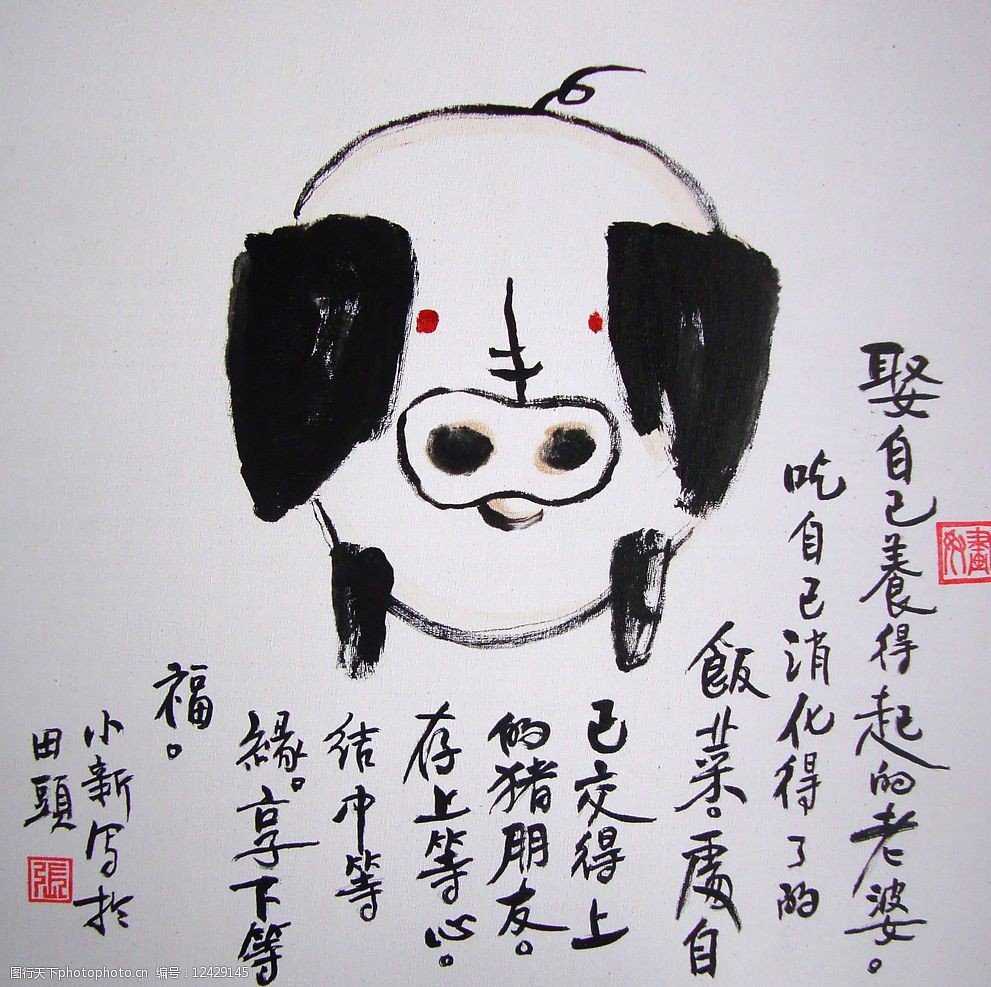 娶自己養得起的老婆。
吃自己消化得了的
飯菜。處自
己交得上
的猪朋友。
存上等心。
结中等
緣。享下等
福。
小新写於
田頭
張
畫
图行天下photophoto.cn 编号：12429145